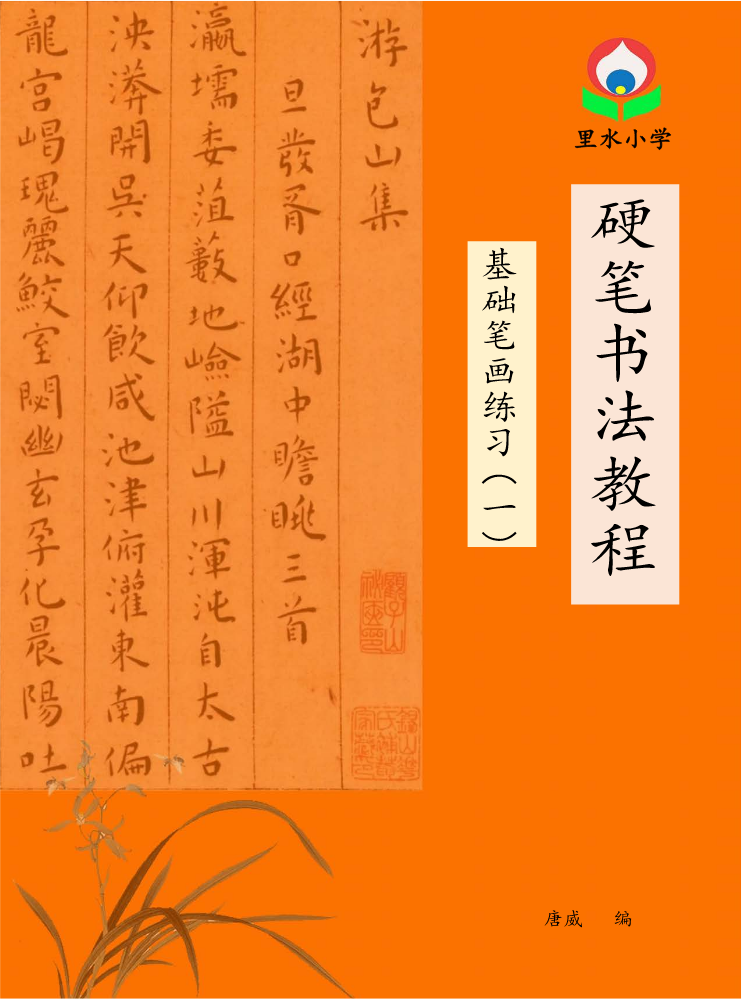 里水小学
硬笔书法教程
基础笔画练习（一）
游包山集
旦發胥口經湖中瞻眺三首
瀛壖委菹藪地嶮隘山川渾沌自太古
泱漭開吳天仰飲咸池津俯灌東南偏
龍宫崵瑰麗鮫室閟幽玄孕化晨陽吐
唐威 编